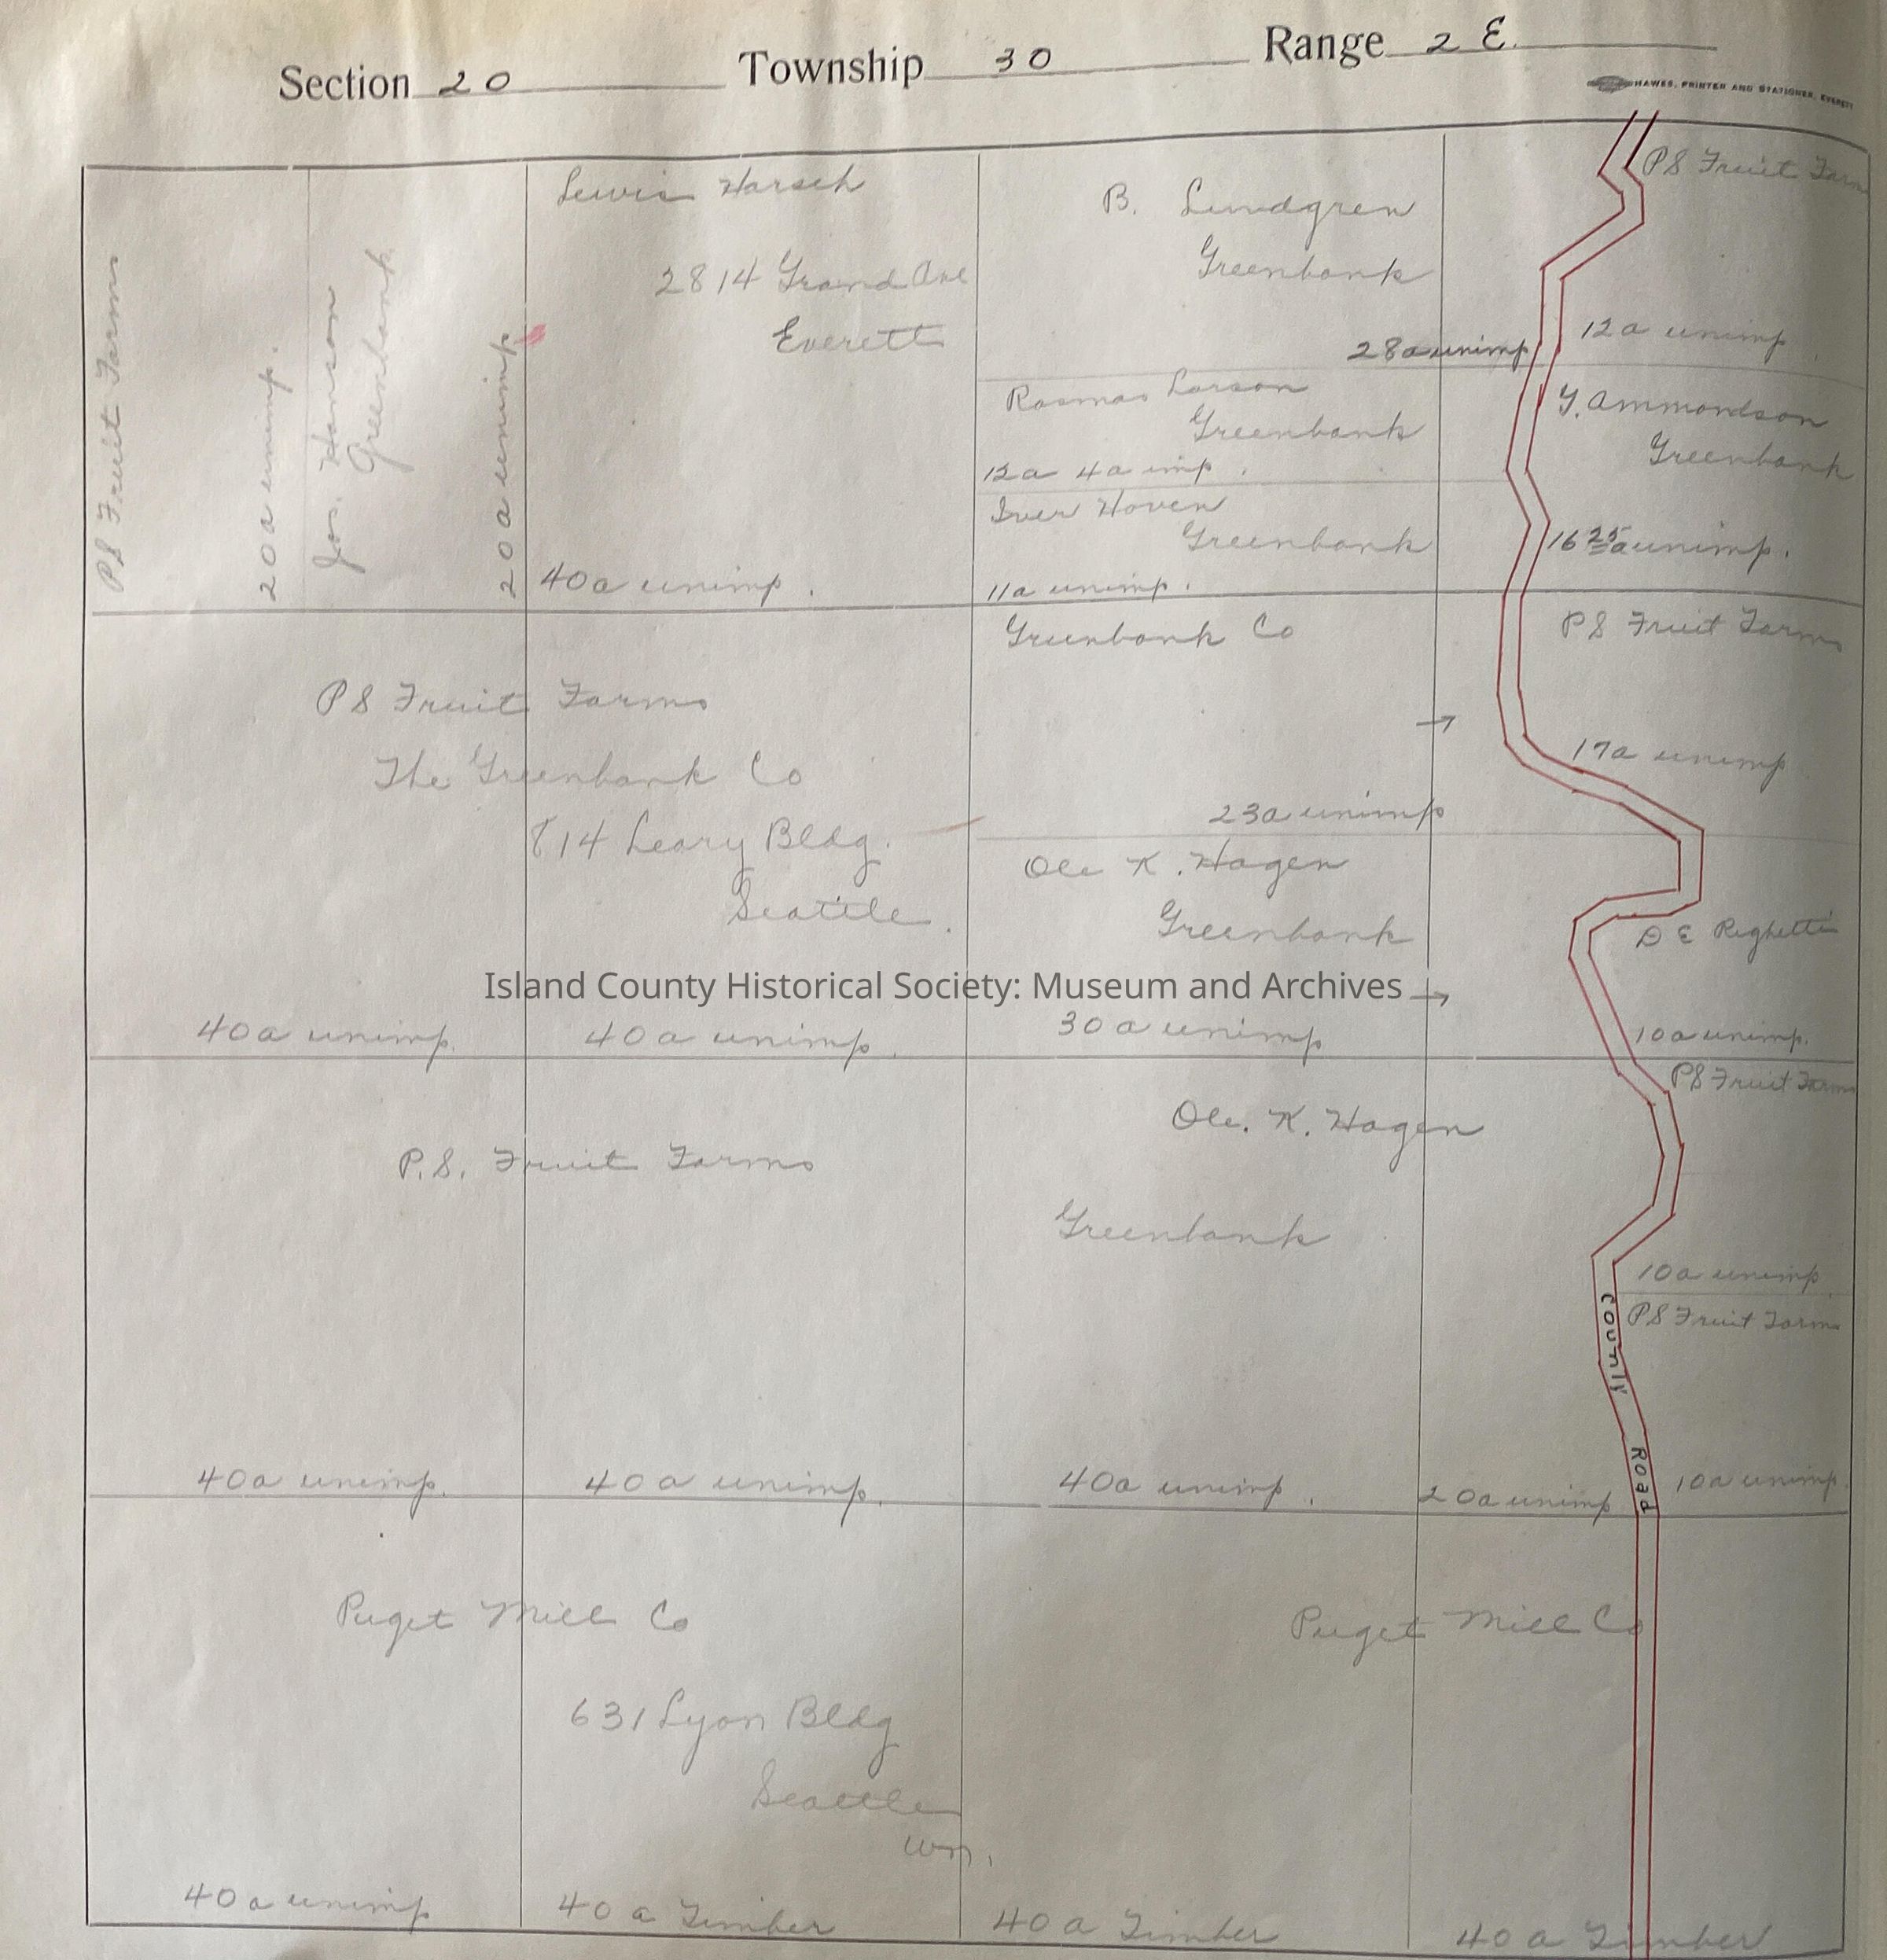 Section 20 Township 30 Range 2 E.
HAWES, PRINTER AND STATIONER, EVERETT
PS Fruit Farms
20a unimp.
Jos. Hanson
Greenbank
20a unimp
Lewis Harsch
2814 Grand Ave
Everett
40a unimp.
B. Lundgren
Greenbank
28a unimp
Rasmas Larson
Greenbank
12a 4a imp.
Iver Hoven
Greenbank
11a unimp.
PS Fruit Farms
12a unimp
Y. Ammondson
Greenbank
16 25 a unimp.
PS Fruit Farms
The Greenbank Co
814 Leary Bldg.
Seattle.
40a unimp.
40a unimp.
Greenbank Co
23a unimp
Ole K. Hagen
Greenbank
30a unimp
PS Fruit Farms
17a unimp
D E Righetti
10a unimp.
Island County Historical Society: Museum and Archives
P.S. Fruit Farms
40a unimp.
40a unimp.
Ole. K. Hagen
Greenbank
40a unimp.
20a unimp
PS Fruit Farms
10a unimp.
PS Fruit Farms
10a unimp.
County Road
Puget Mill Co
631 Lyon Bldg
Seattle
Wn.
40a unimp
40a Timber
Puget Mill Co
40a Timber
40a Timber